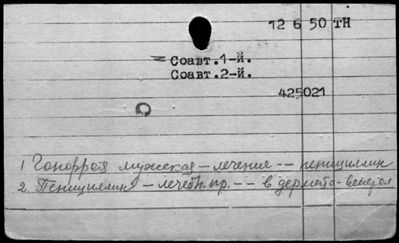 12 6 50 ТН
Соавт.1-й.
Соавт.2-й.
425021
1 Гоноррея мужская – лечение -- пенициллин
2. Пенициллин – лечебн. пр. -- в дермато-венерол